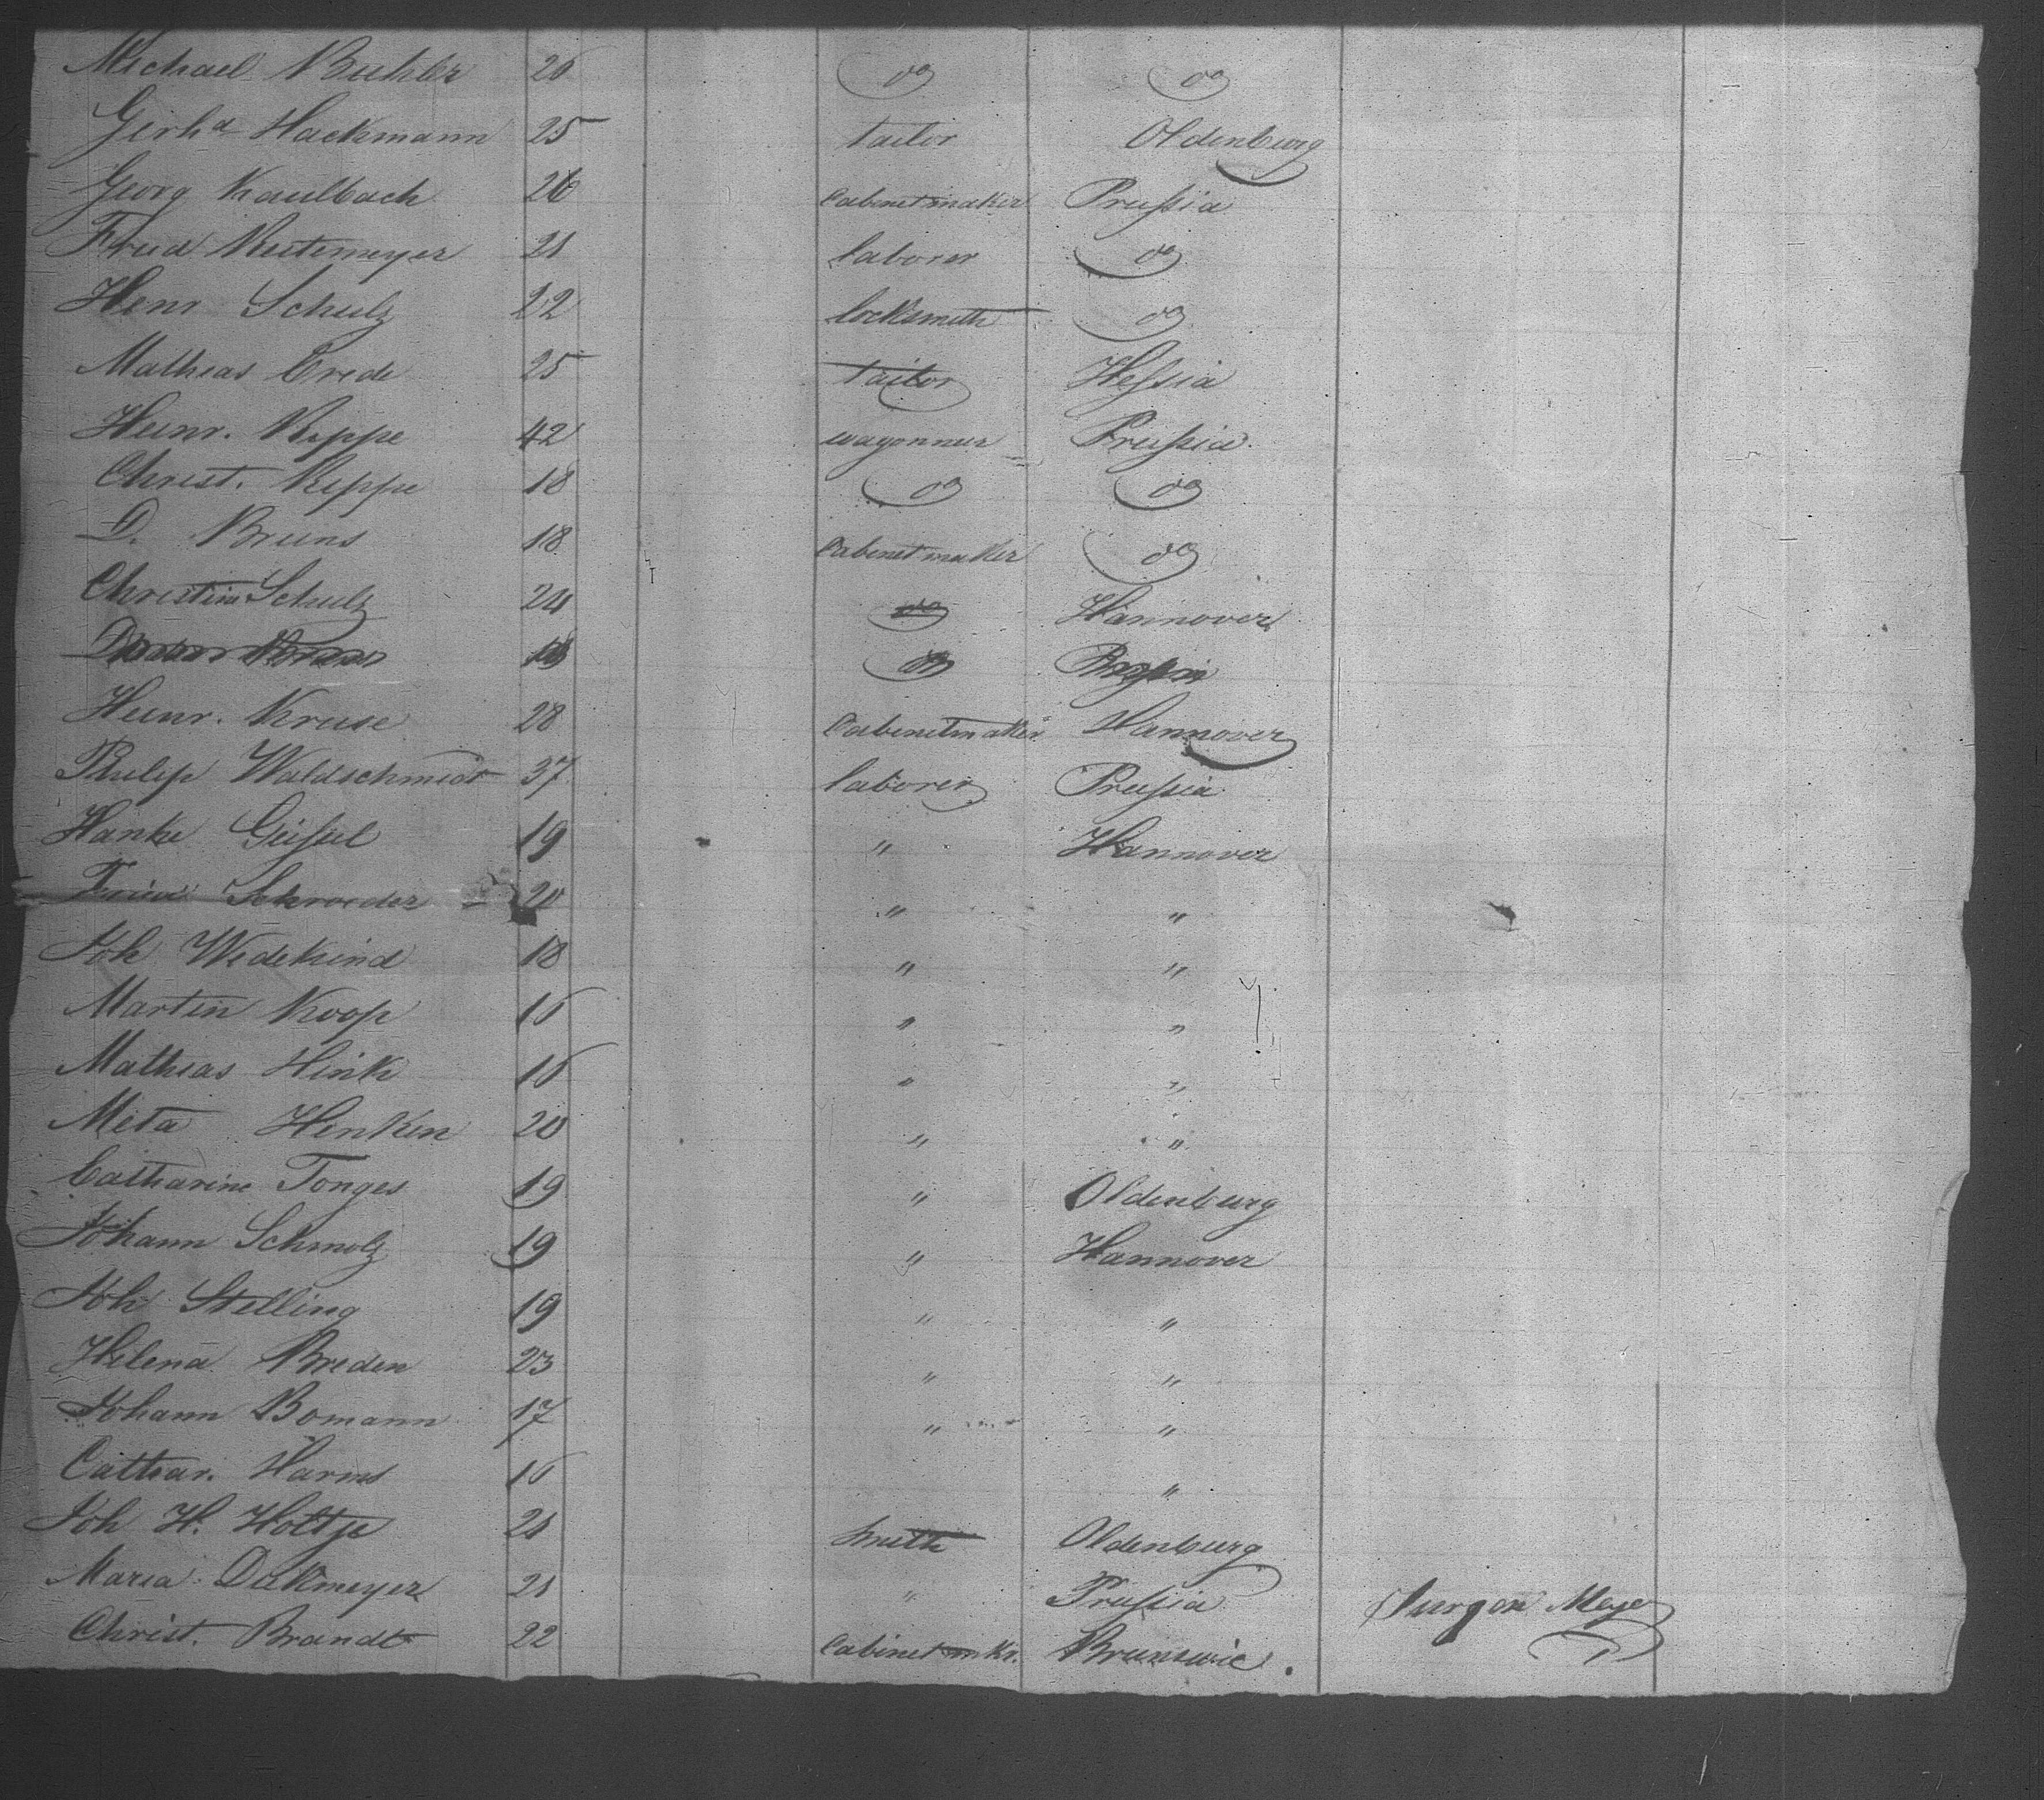 Michael Buhler 26 do do
Gerhd Hackmann 25 tailor Oldenburg
Georg Kaulbach 26 Cabinetmaker Prussia
Fried Reitemeyer 21 laborer do
Henr Schulz 22 locksmith do
Mathias Crede 25 tailor Hessia
Heinr. Reppe 42 wagonner Prussia.
Christ. Reppe 18 do do
D. Bruns 18 Cabinet maker do
Christine Schulz 24 do Hannover
do
Heinr. Kruse 28 Cabinetmaker Hannover
Philip Waldschmidt 37 laborer Prussia
Hanke Geissel 19 " Hannover
Fried Schroeder 20 " "
Joh Wedekind 18 " "
Martin Koop 16 " "
Mathias Hink 16 " "
Meta Henken 20 " "
Catharine Tonges 19 " Oldenburg
Johann Schmolz 19 " Hannover
Joh Stelling 19 " "
Helena Breden 23 " "
Johann Bomann 17 " "
Cathar. Harms 16 "
Joh H. Holtje 21 smith Oldenburg
Maria Dukmeyer 21 " Prussia Jurgen Meyer
Christ. Brandt 22 Cabinet mkr. Brunswic.